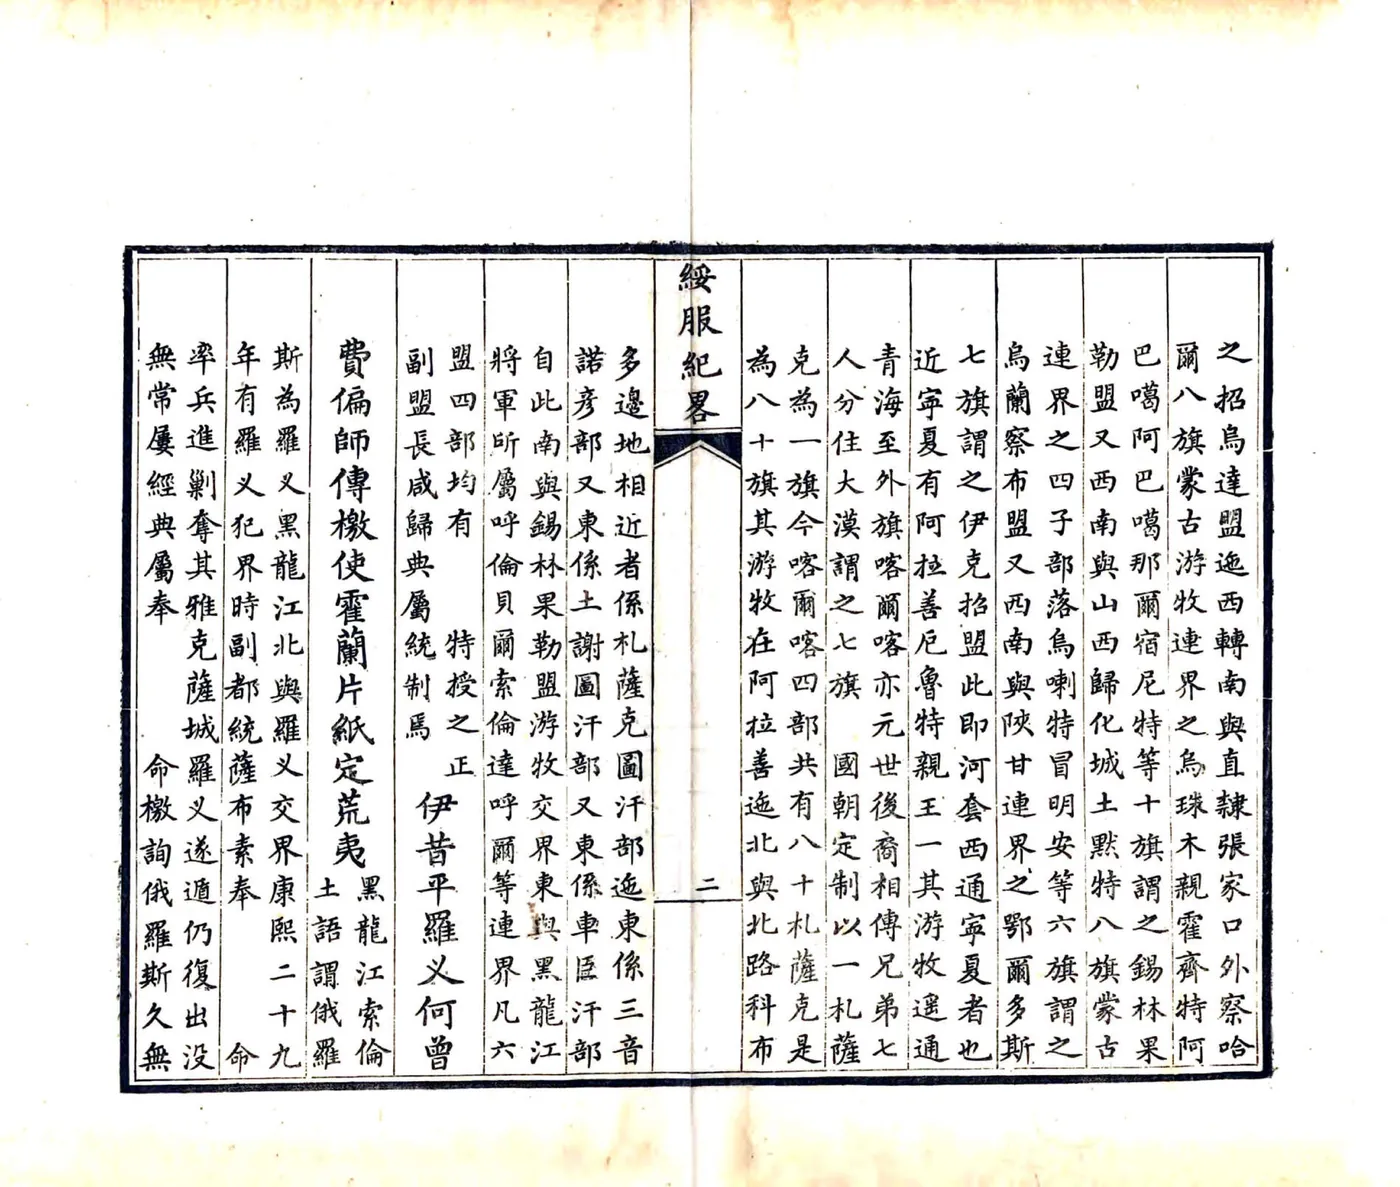 之招烏達盟迤西轉南與直隸張家口外察哈
爾八旗蒙古游牧連界之烏珠木親霍齊特阿
巴噶阿巴噶那爾宿尼特等十旗謂之錫林果
勒盟又西南與山西歸化城土默特八旗蒙古
連界之四子部落烏喇特冒明安等六旗謂之
烏蘭察布盟又西南與陝甘連界之鄂爾多斯
七旗謂之伊克招盟此即河套西通寧夏者也
近寧夏有阿拉善厄魯特親王一其游牧遥通
青海至外旗喀爾喀亦元世後裔相傳兄弟七
人分住大漠謂之七旗　國朝定制以一札薩
克為一旗今喀爾喀四部共有八十札薩克是
為八十旗其游牧在阿拉善迤北與北路科布
綏服紀畧
二
多邊地相近者係札薩克圖汗部迤東係三音
諾彦部又東係土謝圖汗部又東係車臣汗部
自此南與錫林果勒盟游牧交界東與黑龍江
將軍所屬呼倫貝爾索倫達呼爾等連界凡六
盟四部均有　　特授之正
副盟長咸歸典屬統制焉
伊昔平羅义何曾
費偏師傳檄使霍蘭片紙定荒夷
黑龍江索倫
土語謂俄羅
斯為羅义黑龍江北與羅义交界康熙二十九
年有羅义犯界時副都統薩布素奉　　　命
率兵進剿奪其雅克薩城羅义遂遁仍復出没
無常屢經典屬奉　　　命檄詢俄羅斯久無